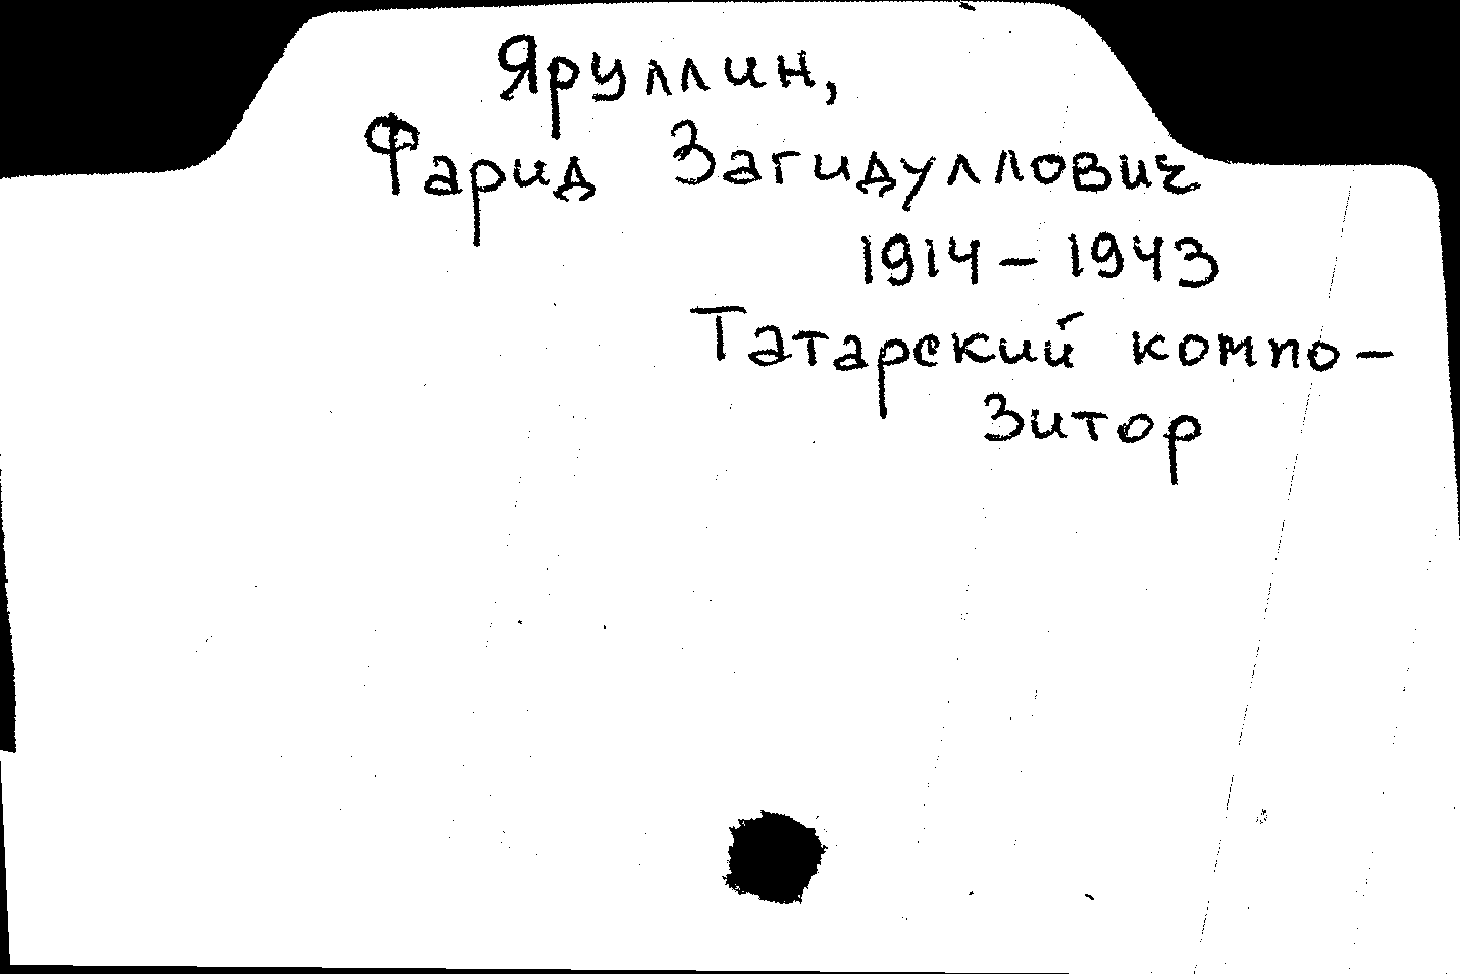 Яруллин,
Фарид Загидуллович
1914 – 1943
Татарский компо-
зитор